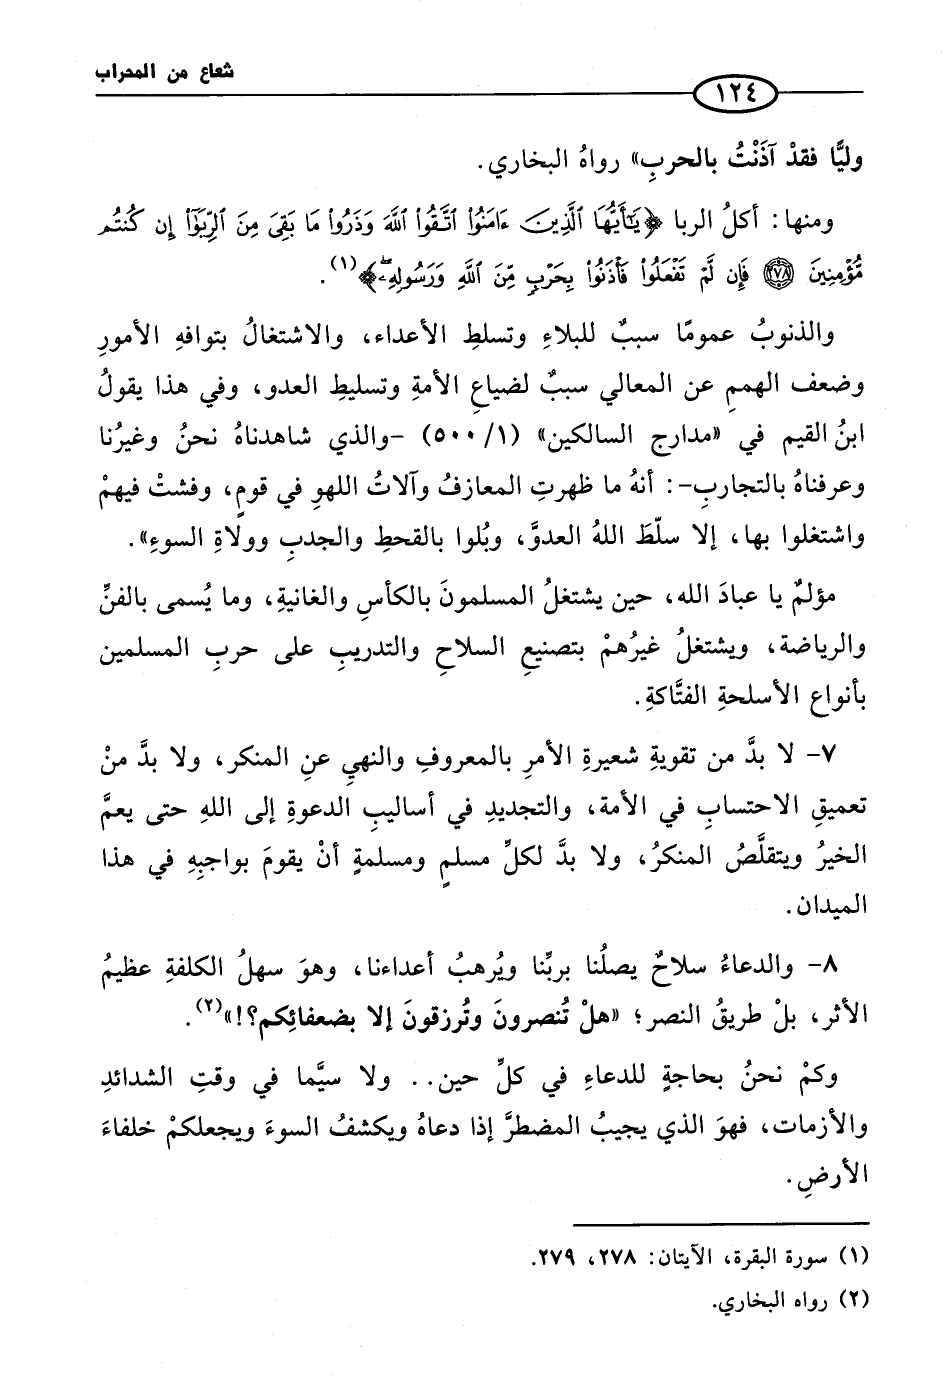 شعاع من المحراب
١٢٤
وليًّا فقدْ آذَنْتُ بالحربِ» رواهُ البخاري.
ومنها: أكلُ الربا ﴿يَٰٓأَيُّهَا ٱلَّذِينَ ءَامَنُوا۟ ٱتَّقُوا۟ ٱللَّهَ وَذَرُوا۟ مَا بَقِىَ مِنَ ٱلرِّبَوٰٓا۟ إِن كُنتُم
مُّؤْمِنِينَ ٢٧٨ فَإِن لَّمْ تَفْعَلُوا۟ فَأْذَنُوا۟ بِحَرْبٍ مِّنَ ٱللَّهِ وَرَسُولِهِۦ﴾(١).
والذنوبُ عمومًا سببٌ للبلاءِ وتسلطِ الأعداء، والاشتغالُ بتوافهِ الأمورِ
وضعف الهممِ عن المعالي سببٌ لضياعِ الأمةِ وتسليطِ العدو، وفي هذا يقولُ
ابنُ القيم في «مدارج السالكين» (١/ ٥٠٠) -والذي شاهدناهُ نحنُ وغيرُنا
وعرفناهُ بالتجاربِ-: أنهُ ما ظهرتِ المعازفُ وآلاتُ اللهوِ في قومٍ، وفشتْ فيهمْ
واشتغلوا بها، إلا سلّطَ اللهُ العدوَّ، وبُلوا بالقحطِ والجدبِ وولاةِ السوءِ».
مؤلمٌ يا عبادَ الله، حين يشتغلُ المسلمونَ بالكأسِ والغانيةِ، وما يُسمى بالفنِّ
والرياضة، ويشتغلُ غيرُهمْ بتصنيعِ السلاحِ والتدريبِ على حربِ المسلمين
بأنواع الأسلحةِ الفتَّاكةِ.
٧- لا بدَّ من تقويةِ شعيرةِ الأمرِ بالمعروفِ والنهيِ عنِ المنكر، ولا بدَّ منْ
تعميقِ الاحتسابِ في الأمة، والتجديدِ في أساليبِ الدعوةِ إلى اللهِ حتى يعمَّ
الخيرُ ويتقلَّصُ المنكرُ، ولا بدَّ لكلِّ مسلمٍ ومسلمةٍ أنْ يقومَ بواجبِهِ في هذا
الميدان.
٨- والدعاءُ سلاحٌ يصلُنا بربِّنا ويُرهبُ أعداءنا، وهوَ سهلُ الكلفةِ عظيمُ
الأثر، بلْ طريقُ النصر؛ «هلْ تُنصرونَ وتُرزقونَ إلا بضعفائِكم؟!»(٢).
وكمْ نحنُ بحاجةٍ للدعاءِ في كلِّ حين.. ولا سيَّما في وقتِ الشدائدِ
والأزمات، فهوَ الذي يجيبُ المضطرَّ إذا دعاهُ ويكشفُ السوءَ ويجعلكمْ خلفاءَ
الأرضِ.
(١) سورة البقرة، الآيتان: ٢٧٨، ٢٧٩.
(٢) رواه البخاري.